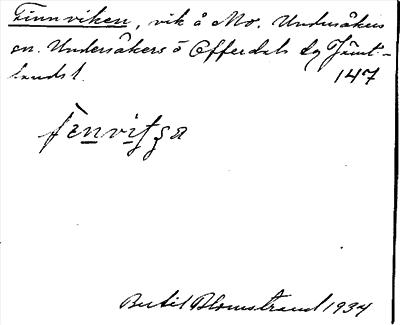 Finnviken, vik å Mo. Undersåkers
sn. Undersåkers o Offerdals tg Jämt-
lands l.
147
fènvitʒa
Bertil Blomstrand 1934